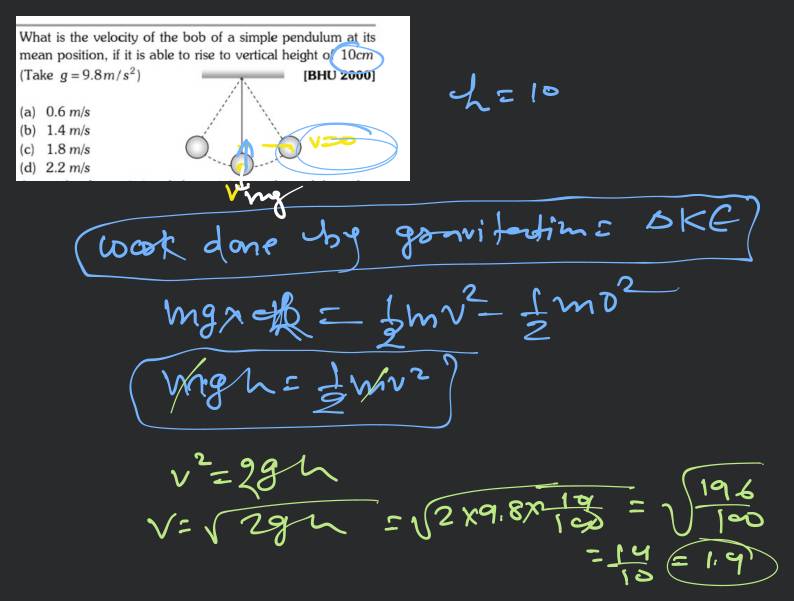 What is the velocity of the bob of a simple pendulum at its
mean position, if it is able to rise to vertical height of 10cm
(Take g = 9.8 m/s²) [BHU 2000]
(a) 0.6 m/s
(b) 1.4 m/s
(c) 1.8 m/s
(d) 2.2 m/s
h = 10
v=0
v mg
work done by gravitation = ΔKE
mg × h = 1/2 mv² - 1/2 m0²
mgh = 1/2 mv²
v² = 2gh
v = √2gh = √2 × 9.8 × 10/100 = √196/100
= 14/10 = 1.4